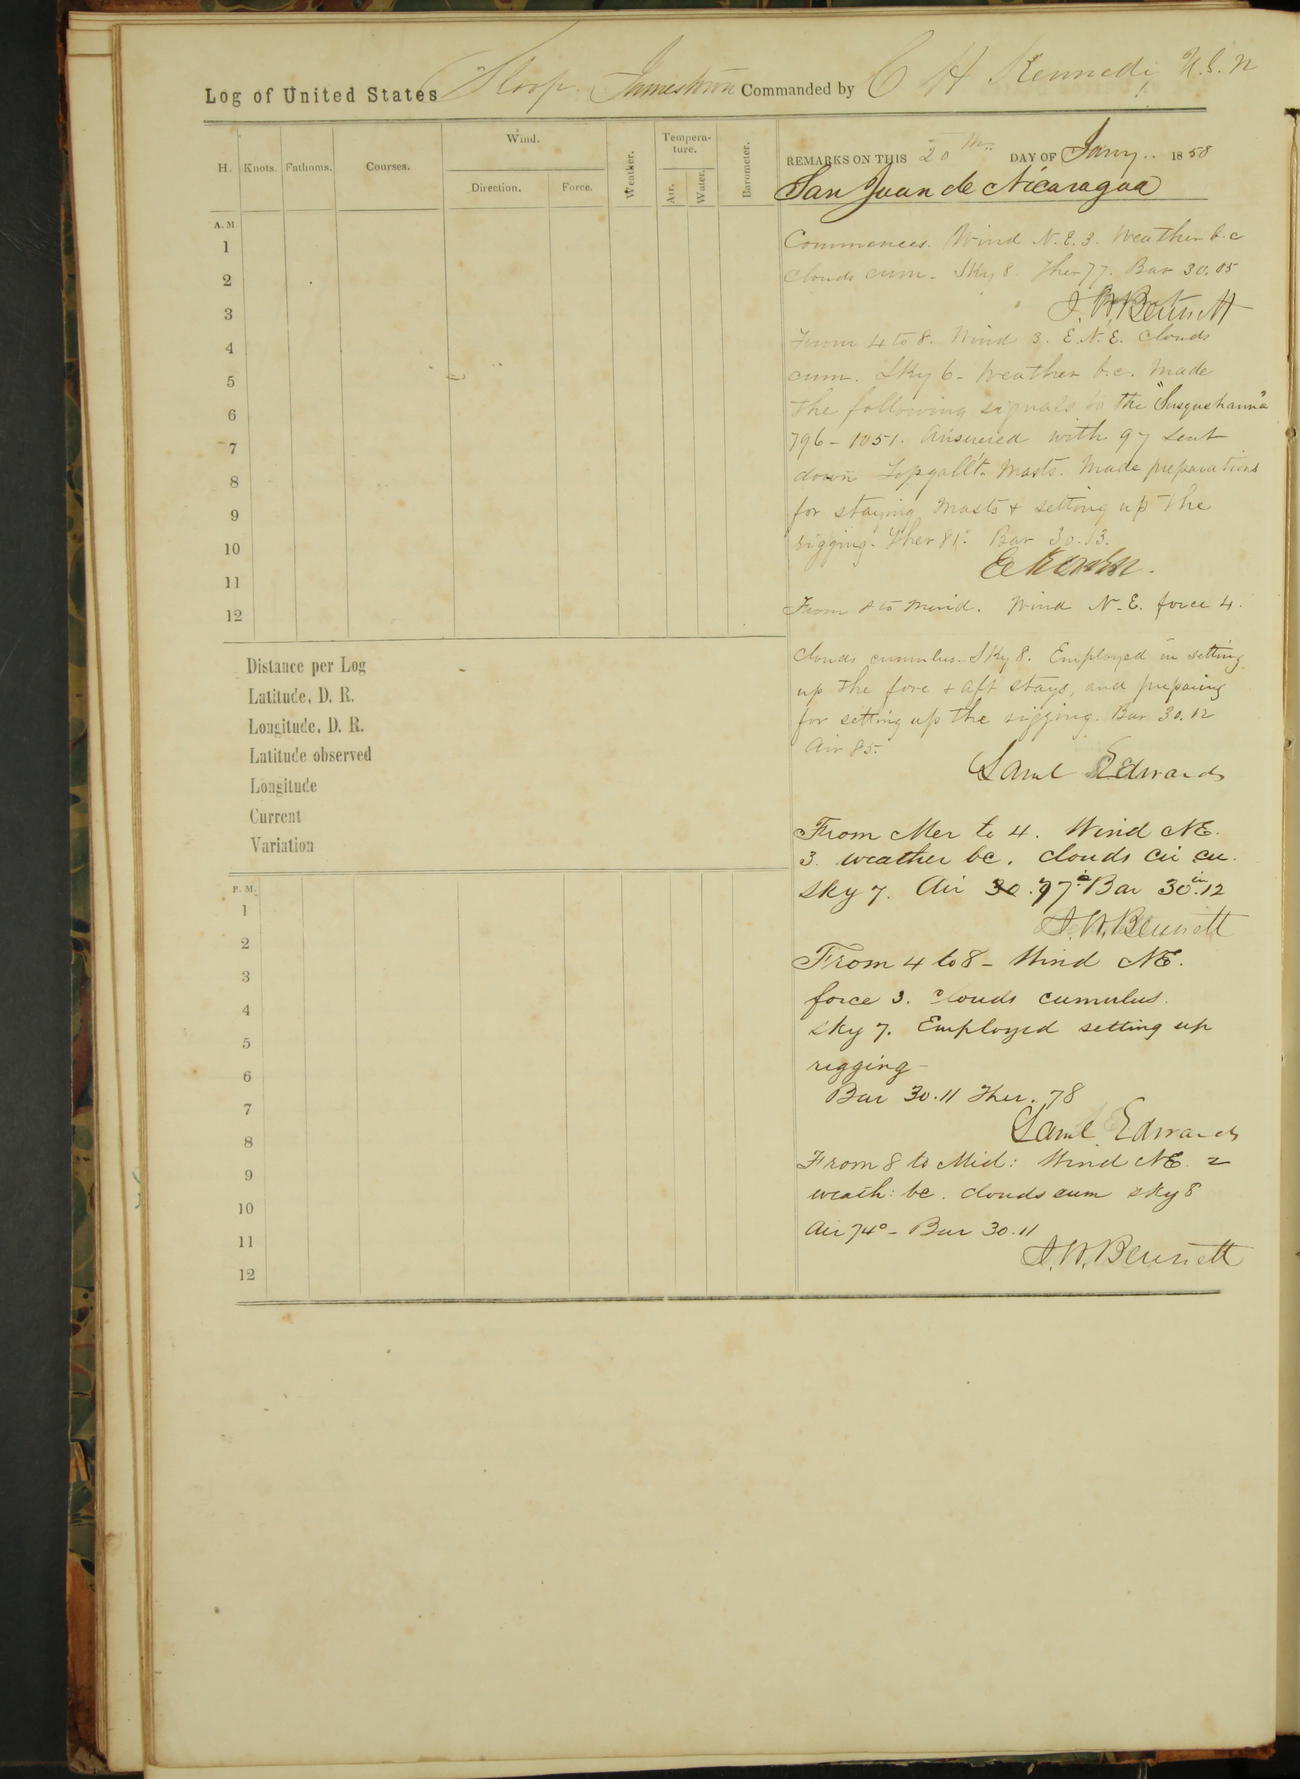 Log of United States Sloop Jamestown Commanded by C H Kennedy U.S.N
H. Knots. Fathoms. Courses. Wind. Direction. Force. Weather. Tempera-ture. Air. Water. Barometer.
REMARKS ON THIS 20th DAY OF Jany.. 1858
San Juan de Nicaragua
A. M.
1
2
3
4
5
6
7
8
9
10
11
12
Commences. Wind N.E. 3. Weather b.c
clouds cum - Sky 8. Ther 77. Bar 30.05
J. W. Bennett
From 4 to 8. Wind 3. E.N.E. Clouds
cum. Sky 6 - Weather b.c. Made
the following signals to the "Susquehanna"
796 - 1051. Answered with 97 sent
down Topgall't. Masts. Made preparations
for staying Masts & setting up the
rigging. Ther 81°. Bar 30.13.
From 8 to Merid. Wind N.E. force 4.
Clouds cumulus. Sky 8. Employed in setting
up the fore & aft stays, and preparing
for setting up the rigging. Bar 30.12
Air 85.
Saml Edwards
Distance per Log
Latitude, D. R.
Longitude, D. R.
Latitude observed
Longitude
Current
Variation
P. M.
1
2
3
4
5
6
7
8
9
10
11
12
From Mer to 4. Wind NE.
3. weather bc. clouds cir cu.
sky 7. Air 30. 77° Bar 30in.12
J. W. Bennett
From 4 to 8 - Wind NE.
force 3. clouds cumulus.
sky 7. Employed setting up
rigging -
Bar 30.11 Ther. 78
Saml Edwards
From 8 to Mid: Wind NE. 2
weath: bc. clouds cum sky 8
Air 74° - Bar 30.11
J. W. Bennett